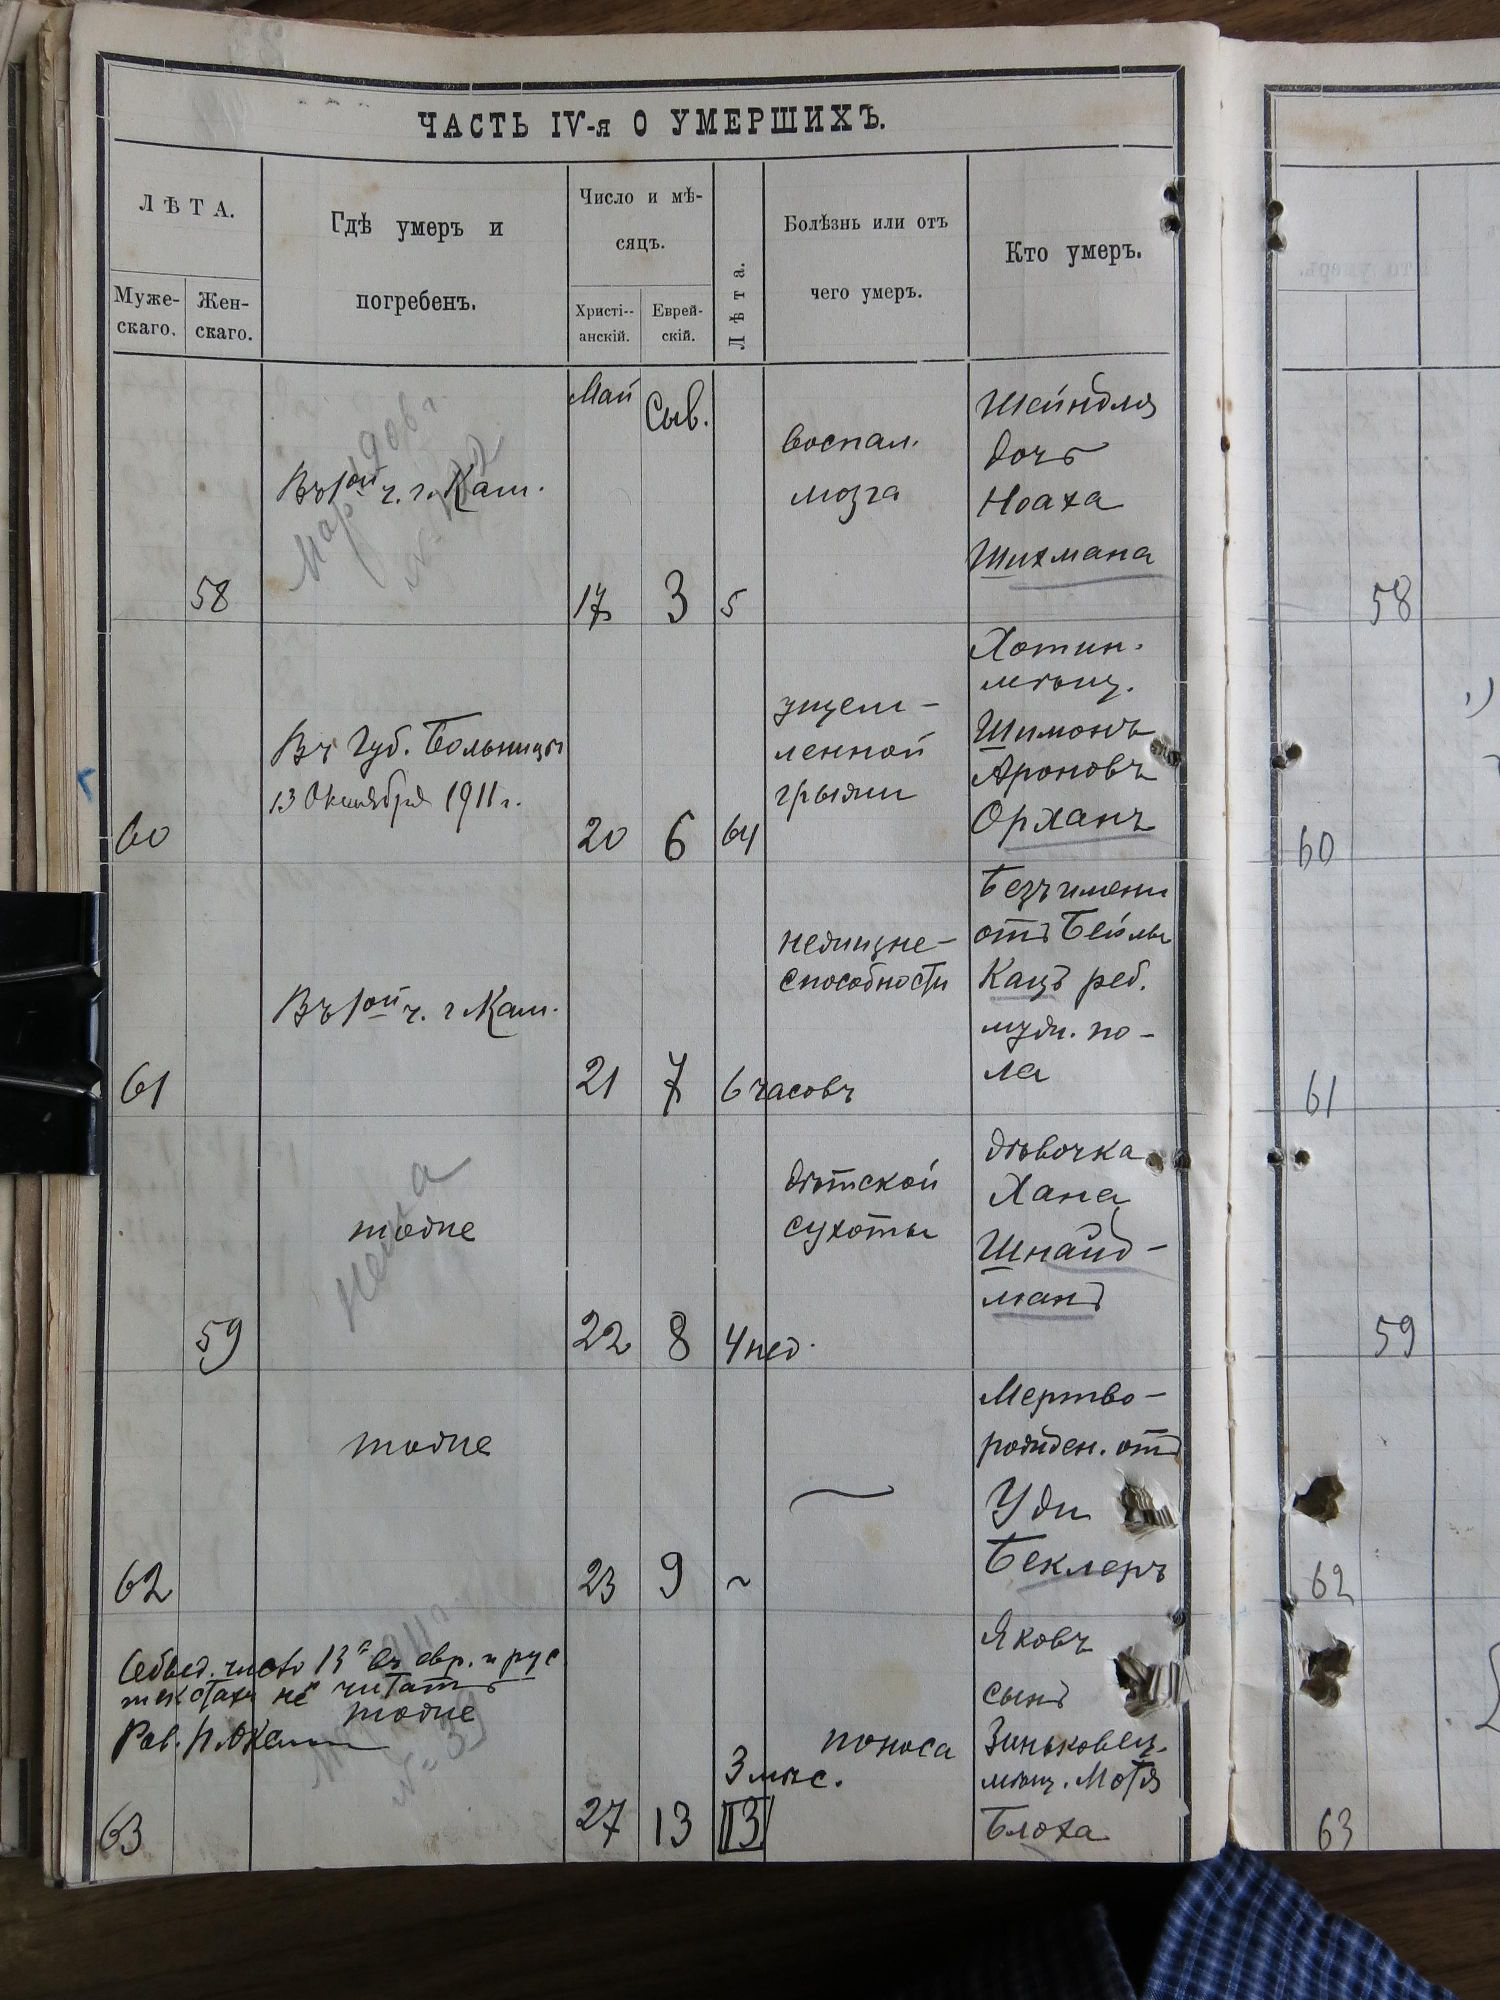 ЧАСТЬ IV-я О УМЕРШИХЪ.
ЛѢТА.
Муже-
скаго.
Жен-
скаго.
Гдѣ умеръ и
погребенъ.
Число и мѣ-
сяцъ.
Христі--
анскій.
Еврей-
скій.
Лѣта.
Болѣзнь или отъ
чего умеръ.
Кто умеръ.
58
Въ 1ой ч. г. Кам.
Май
17
Сив.
3
5
воспал.
мозга
Шейндля
дочь
Ноаха
Шихмана
60
Въ Губ. Больницѣ
13 Октября 1911 г.
20
6
64
ущем-
ленной
грыжи
Хотин.
мѣщ.
Шимонъ
Ароновъ
Орханъ
61
Въ 1ой ч. г. Кам.
21
7
6 часовъ
нежизне-
способности
Безъ имени
отъ Бейлы
Кацъ реб.
муж. по-
ла
59
тоже
22
8
4 нед.
дѣтской
сухоты
дѣвочка
Хана
Шнайд-
манъ
62
тоже
23
9
~
Мертво-
рожден. отъ
Уди
Беклеръ
число 13 въ евр. и рус
текстахъ не читать
Рав.
63
тоже
№ 39
27
13
3 мѣс.
13
поноса
Яковъ
сынъ
Зиньковец.
мѣщ. Мотя
Блоха
58
60
61
59
62
63